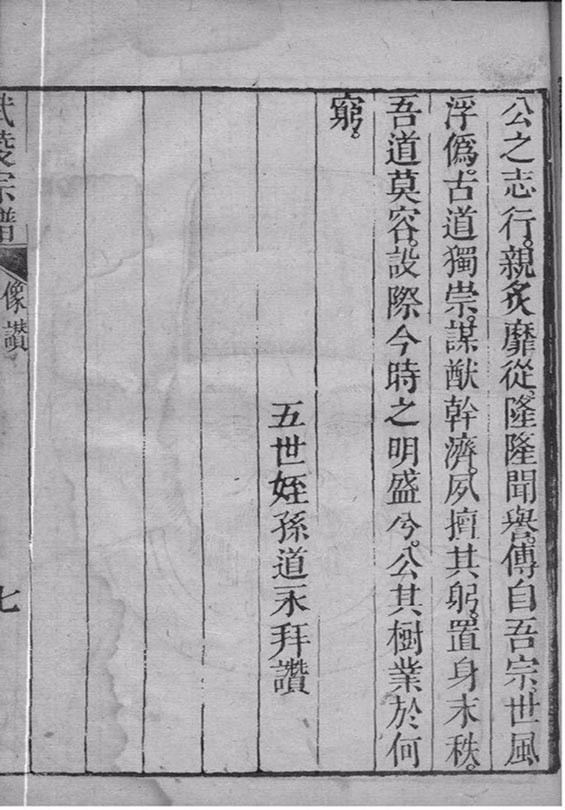 公之志行。親炙靡從。隆隆聞譽。傳自吾宗。世風
浮僞。古道獨崇。謀猷幹濟。夙擅其躬。置身末秩。
吾道莫容。設際今時之明盛兮。公其樹業於何
窮。
五世姪孫道永拜讚
武陵宗譜
像讚
七